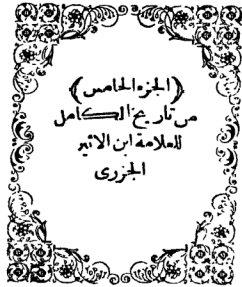 ﴿الجزء الخامس﴾
من تاريخ الكامل
للعلامة ابن الاثير
الجزرى